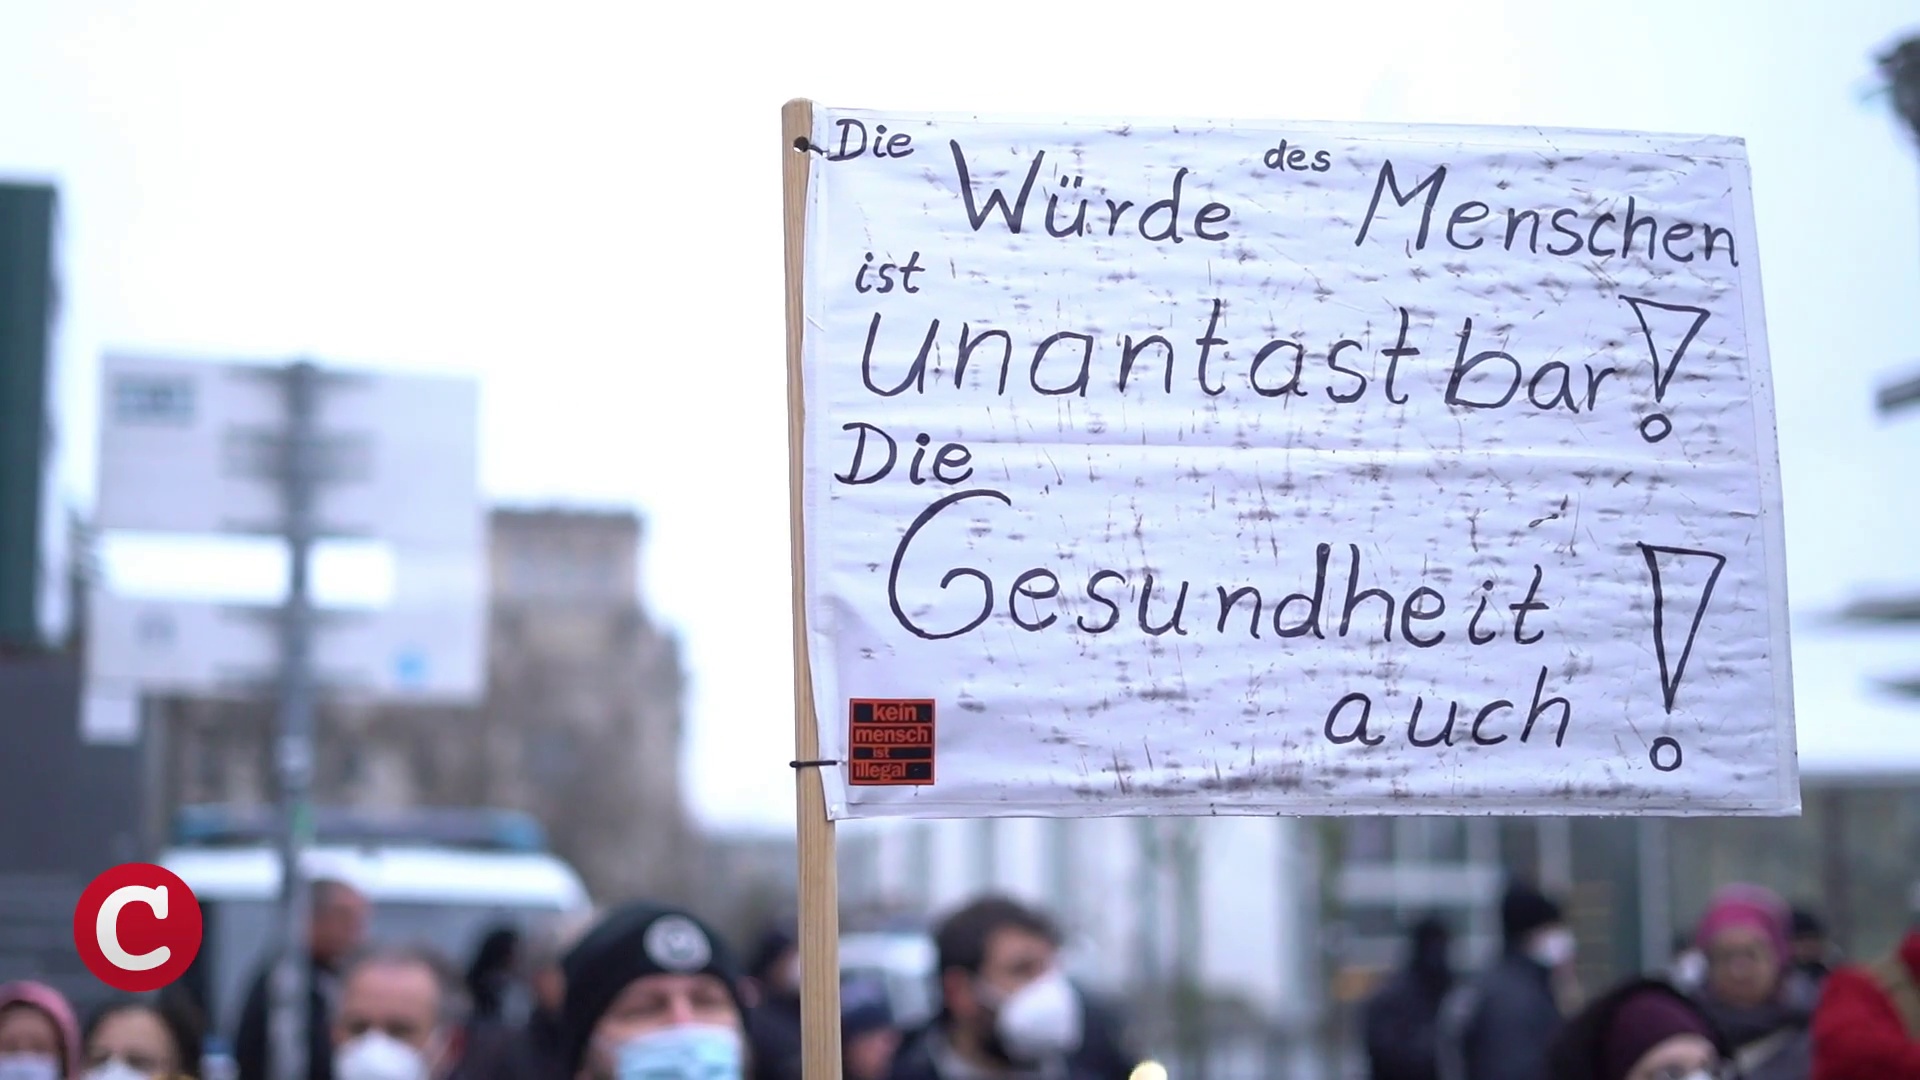 Die Würde des Menschen
ist
unantastbar!
Die
Gesundheit!
auch
kein
mensch
ist
illegal
C